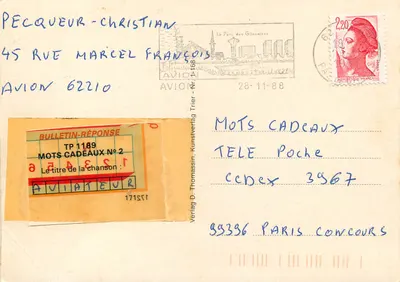 PECQUEUR-CHRISTIAN
45 RUE MARCEL FRANÇOIS
AVION 62210
Le Parc des Glissoires
AVION
AVION
28-11-88
2,20
BULLETIN-RÉPONSE
TP 1189
MOTS CADEAUX Nº 2
Le titre de la chanson :
AVIATEUR
171221
Verlag D. Thomassin, Kunstverlag Trier - Nr.
MOTS CADEAUX
TELE POCHE
CEDEX 3967
99396 PARIS CONCOURS